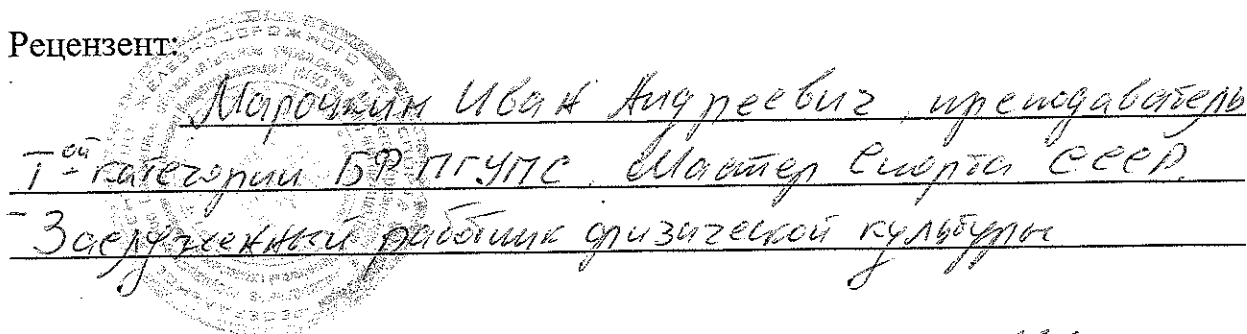 Рецензент:
Марочкин Иван Андреевич, преподаватель
I ой категории БФ ПГУПС. Мастер Спорта СССР.
- Заслуженный работник физической культуры